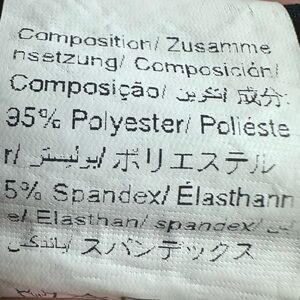 Composition/ Zusamme
nsetzung/ Composición/
Composição/ تكوين/ 成分:
95% Polyester/ Poliéste
r/ بوليستر/ ポリエステル
5% Spandex/ Élasthann
e/ Elasthan/ spandex/
スパンデックス